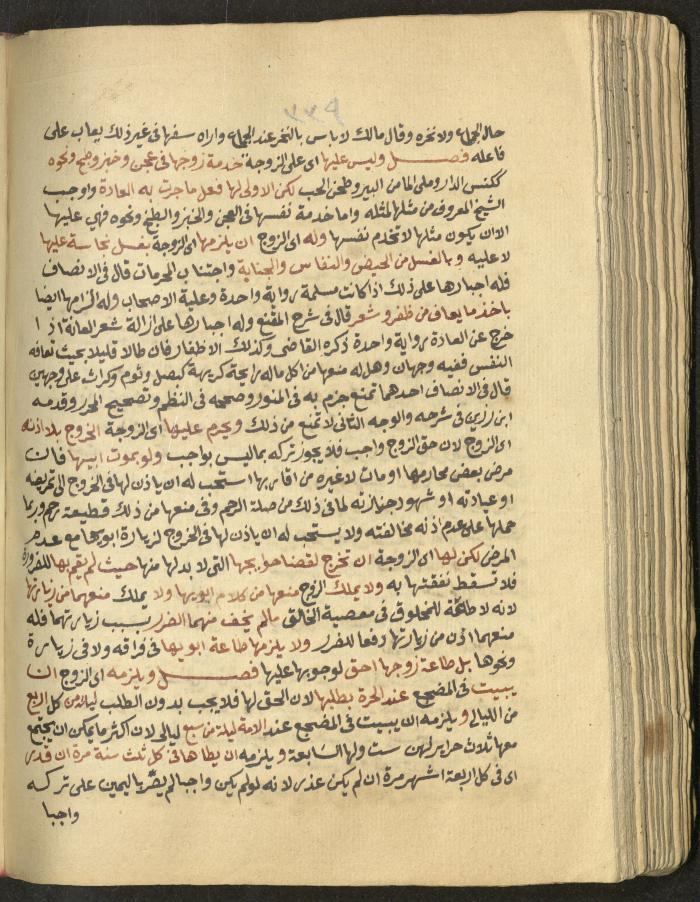 ٣٣٩
حال الجماع ولا نخره وقال مالك لا باس بالنخر عند الجماع واراه سفها فى غير ذلك يعاب على
فاعله فصل وليس عليها اى على الزوجة خدمة زوجها فى عجن وخبز وطبخ ونحوه
ككنس الدار وملى الما من البير وطحن الحب لكن الاولى لها فعل ما جرت به العادة واوجب
الشيخ المعروف من مثلها لمثله واما خدمة نفسها فى العجن والخبز والطبخ ونحوه فهي عليها
الا ان يكون مثلها لا تخدم نفسها وله اى الزوج ان يلزمها اى الزوجة بغسل نجاسة عليها
لا عليه وبالغسل من الحيض والنفاس والجنابة واجتناب المحرمات قال فى الانصاف
فله اجبارها على ذلك اذا كانت مسلمة رواية واحدة وعليه الاصحاب وله الزامها ايضا
باخذ ما يعاف من ظفر وشعر قال فى شرح المقنع وله اجبارها على ازالة شعر العانة اذا
خرج عن العادة رواية واحدة ذكره القاضى وكذلك الاظفار فان طالا قليلا بحيث تعافه
النفس ففيه وجهان وهل له منعها من اكل ماله رايحة كريهة كبصل وثوم وكراث على وجهين
قال فى الانصاف احدهما تمنع جزم به فى المنور وصححه فى النظم وتصحيح المحرر وقدمه
ابن رزين فى شرحه والوجه الثانى لا تمنع من ذلك ويحرم عليها اى الزوجة الخروج بلا اذنه
اى الزوج لان حق الزوج واجب فلا يجوز تركه بما ليس بواجب ولو بموت ابيها فان
مرض بعض محارمها او مات لا غيره من اقاربها استحب له ان ياذن لها فى الخروج الى تمريضه
او عيادته او شهود جنازته لما فى ذلك من صلة الرحم وفى منعها من ذلك قطيعة رحم وربما
حملها على عدم اذنه مخالفته ولا يستحب له ان ياذن لها فى الخروج لزيارة ابويها مع عدم
المرض لكن لها اى الزوجة ان تخرج لقضا حوايجها التى لا بد لها منها حيث لم يقم بها للضرورة
فلا تسقط نفقتها به ولا يملك الزوج منعها من كلام ابويها ولا يملك منعهما من زيارتها
لانه لا طاعة للمخلوق فى معصية الخالق مالم يخف منهما الضرر بسبب زيارتهما فله
منعهما اذن من زيارتها دفعا للضرر ولا يلزمها طاعة ابويها فى فراقه ولا فى زيارة
ونحوها بل طاعة زوجها احق لوجوبها عليها فصل ويلزمه اى الزوج ان
يبيت فى المضجع عند الحرة بطلبها لان الحق لها فلا يجب بدون الطلب ليلة من كل اربع
من الليالى ويلزمه ان يبيت فى المضجع عند الامة ليلة من سبع ليالى لان اكثر ما يمكن ان يجتمع
معها ثلاث حراير لهن ست ولها السابعة ويلزمه ان يطا هانى كل ثلث سنة مرة ان قدر
اى فى كل اربعة اشهر مرة ان لم يكن عذر لانه لو لم يكن واجبا لم يضر باليمين على تركه
واجبا